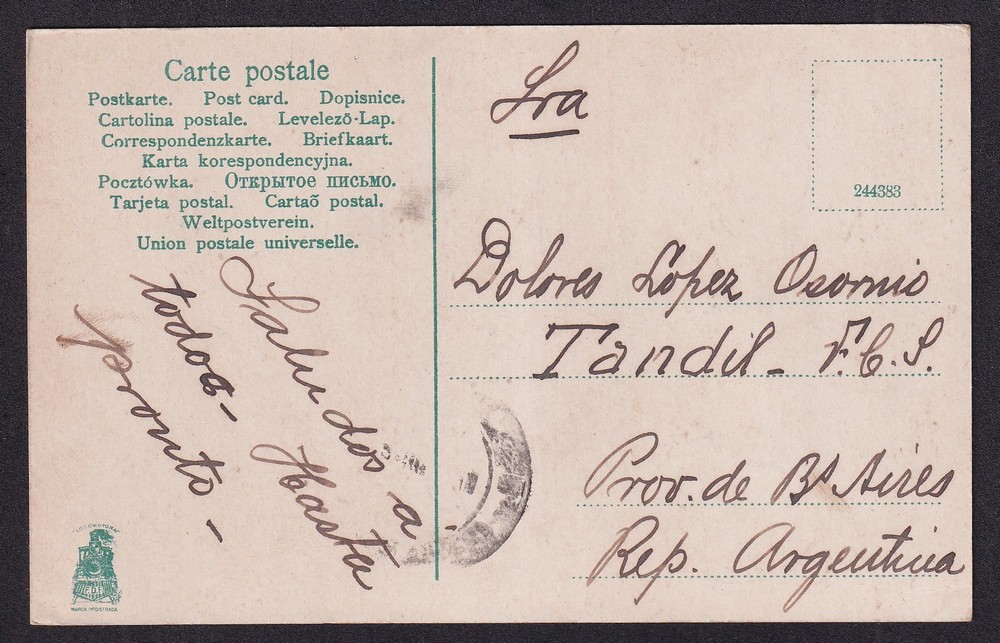 Carte postale
Postkarte. Post card. Dopisnice.
Cartolina postale. Levelező-Lap.
Correspondenzkarte. Briefkaart.
Karta korespondencyjna.
Pocztówka. Открытое письмо.
Tarjeta postal. Cartaõ postal.
Weltpostverein.
Union postale universelle.
Saludos a
todos - Hasta
pronto -
"LOCOMOTORA"
MARCA REGISTRADA
Sra
244383
Dolores López Osornio
Tandil - F.C.S.
Prov. de Bs Aires
Rep. Argentina